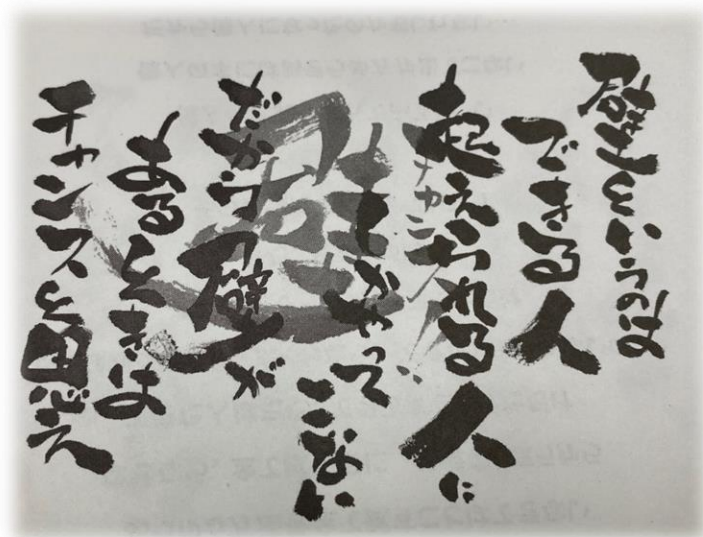 壁というのは
できる人
起えられる人に
しかやって
こない
だから壁が
あるときは
チャンスと思え
壁
チャンス